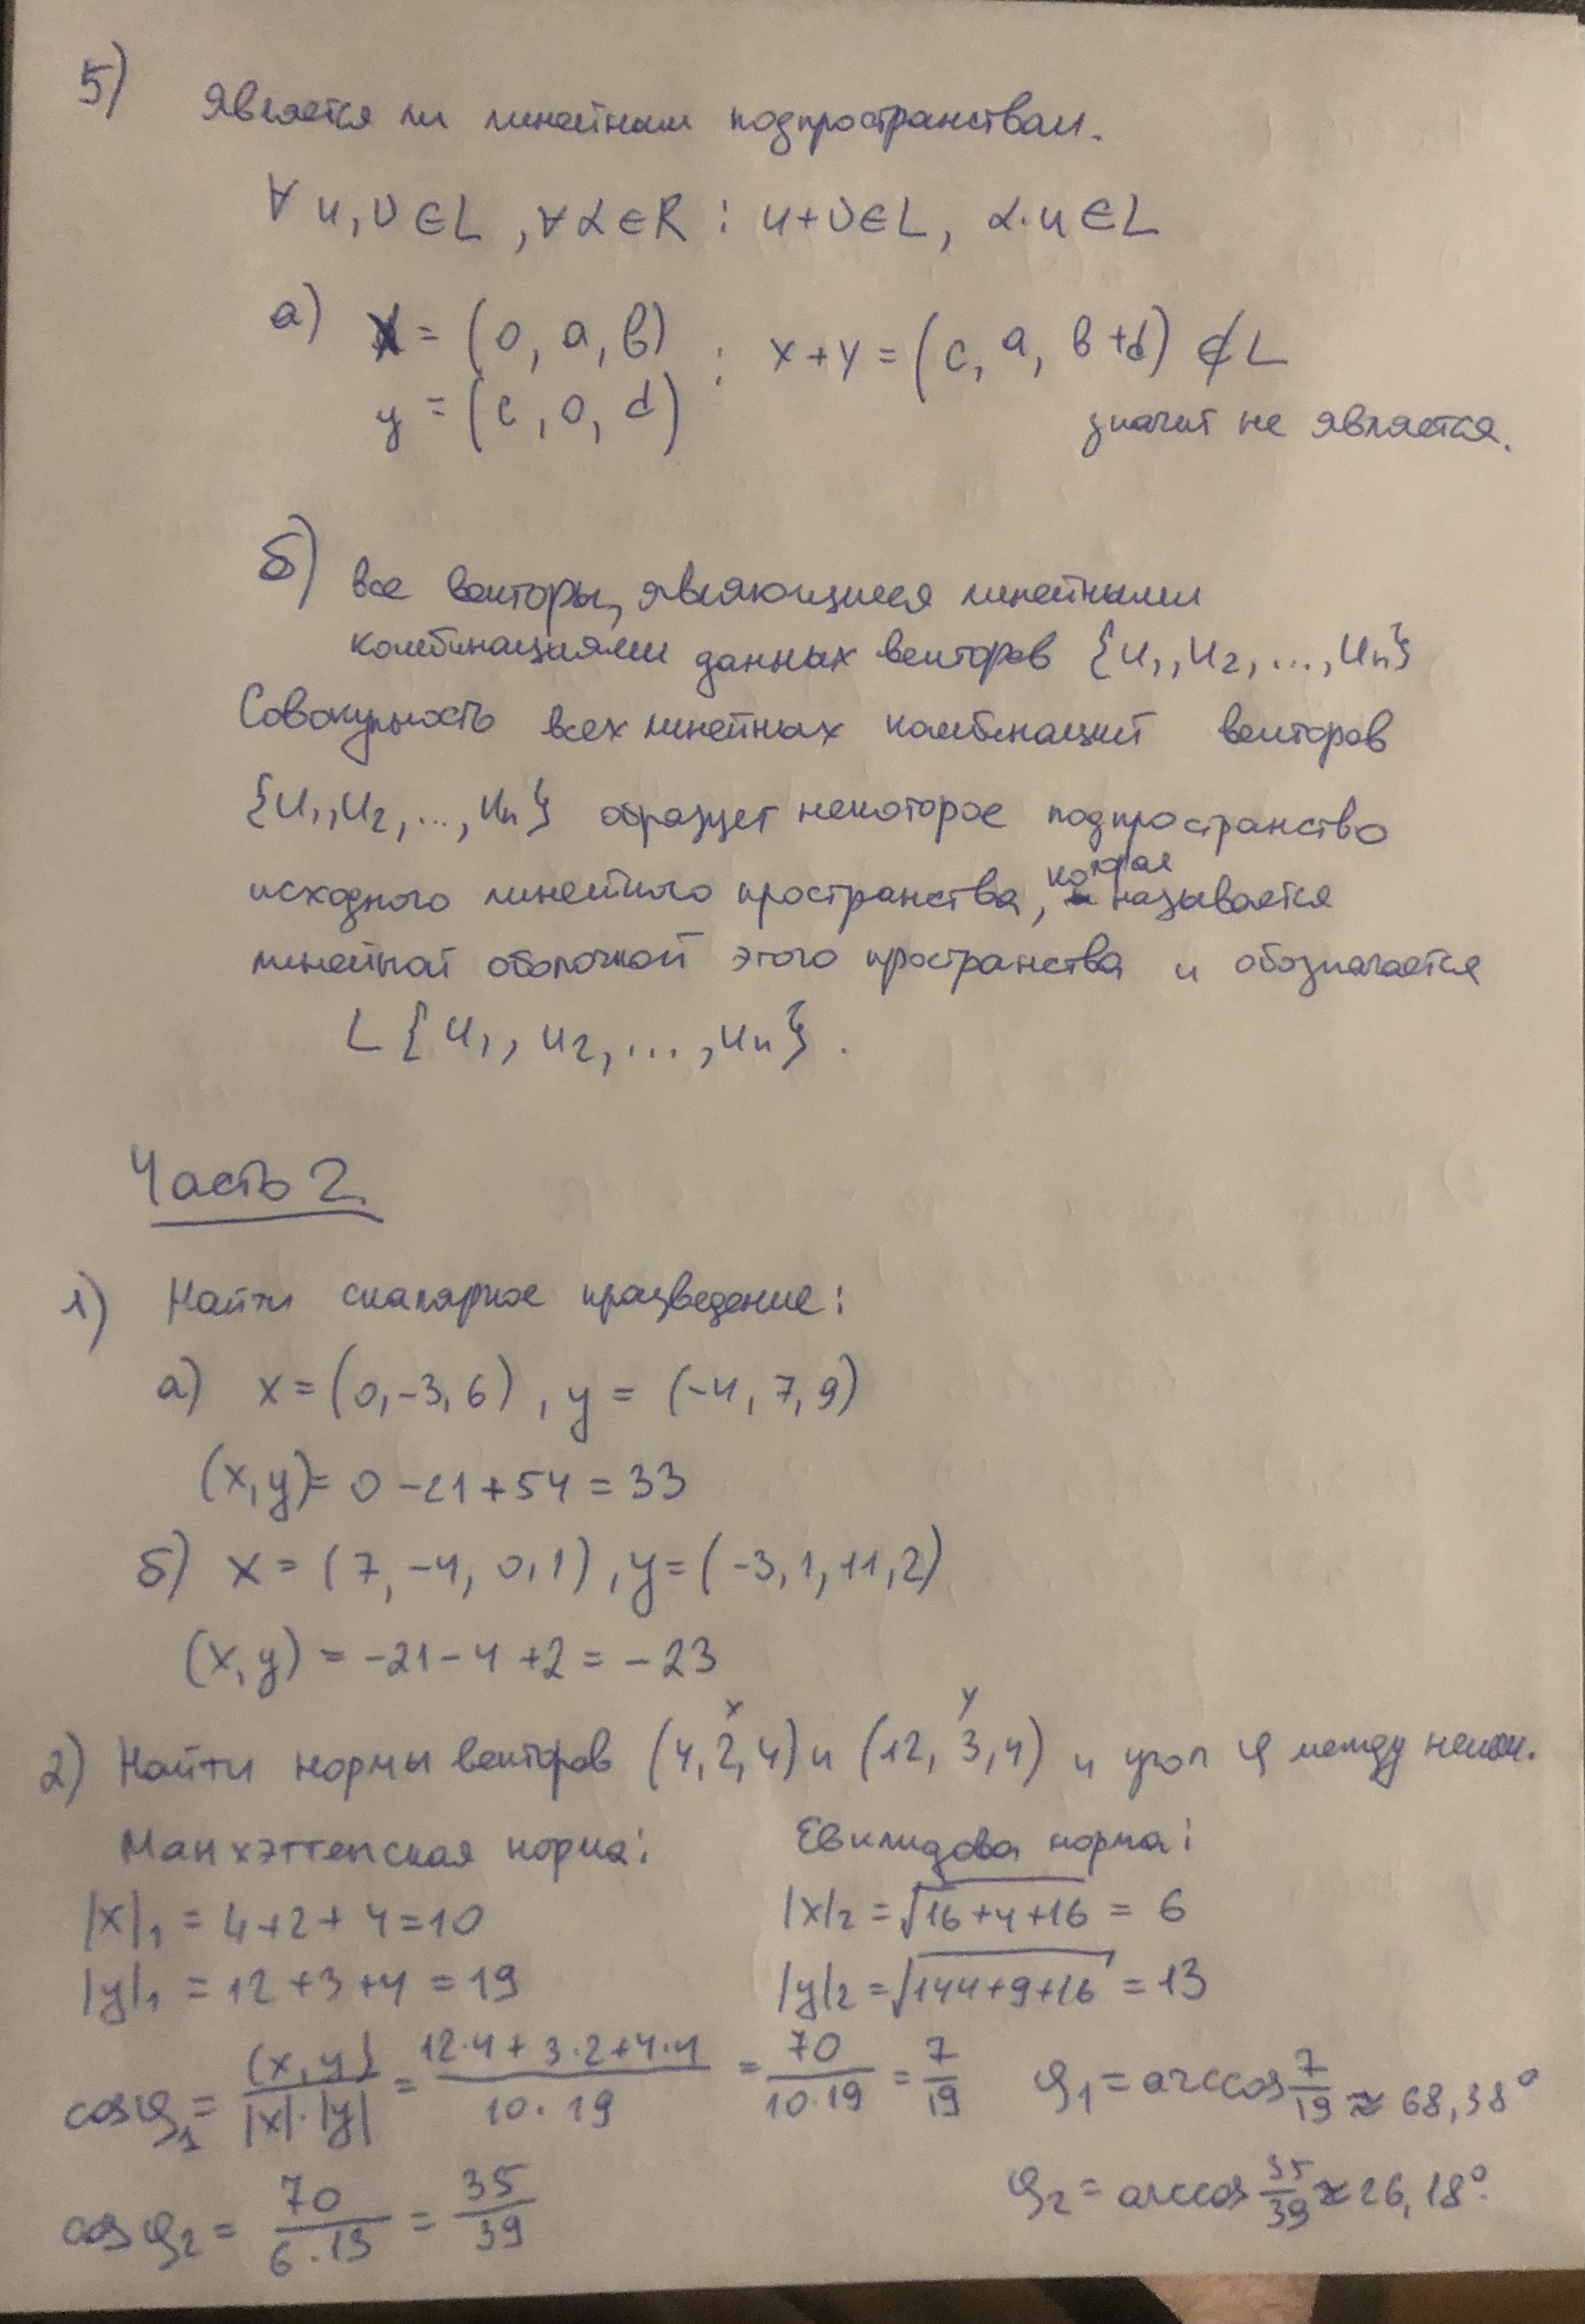 5) Является ли линейным подпространством.
∀ u, v ∈ L, ∀ α ∈ R : u+v ∈ L, α·u ∈ L
а) x = (0, a, b) : x+y = (c, a, b+d) ∉ L
y = (c, 0, d)
значит не является.
б) все векторы, являющиеся линейными
комбинациями данных векторов {u₁, u₂, ..., uₙ}
Совокупность всех линейных комбинаций векторов
{u₁, u₂, ..., uₙ} образует некоторое подпространство
исходного линейного пространства, которая называется
линейной оболочкой этого пространства и обозначается
L {u₁, u₂, ..., uₙ}.
Часть 2.
1) Найти скалярное произведение:
а) x = (0, -3, 6), y = (-4, 7, 9)
(x, y) = 0 - 21 + 54 = 33
б) x = (7, -4, 0, 1), y = (-3, 1, 11, 2)
(x, y) = -21 - 4 + 2 = -23
x y
2) Найти нормы векторов (4, 2, 4) и (12, 3, 4) и угол φ между ними.
Манхэттенская норма: Евклидова норма:
|x|₁ = 4+2+4=10 |x|₂ = √(16+4+16) = 6
|y|₁ = 12+3+4 = 19 |y|₂ = √(144+9+16) = 13
cosφ₁ = (x,y)/|x|·|y| = 12·4+3·2+4·4/10·19 = 70/10·19 = 7/19 φ₁ = arccos 7/19 ≈ 68,38°
cosφ₂ = 70/6·13 = 35/39 φ₂ = arccos 35/39 ≈ 26,18°.